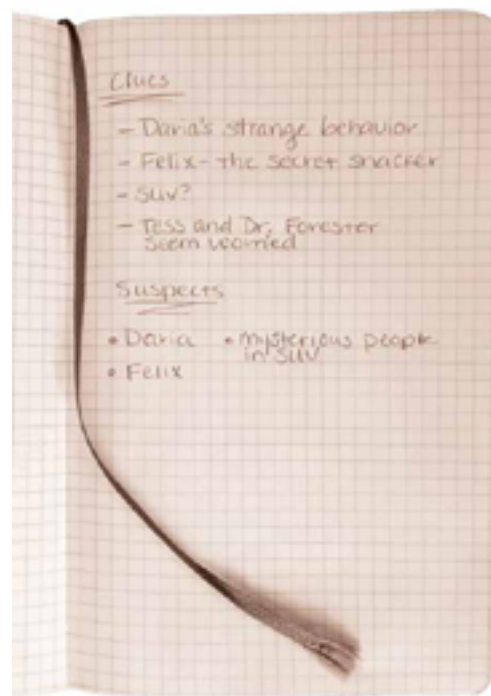 Clues
- Daria's strange behavior
- Felix - the secret snacker
- SUV?
- Tess and Dr. Forester
seem worried
Suspects
• Daria • mysterious people
in SUV
• Felix